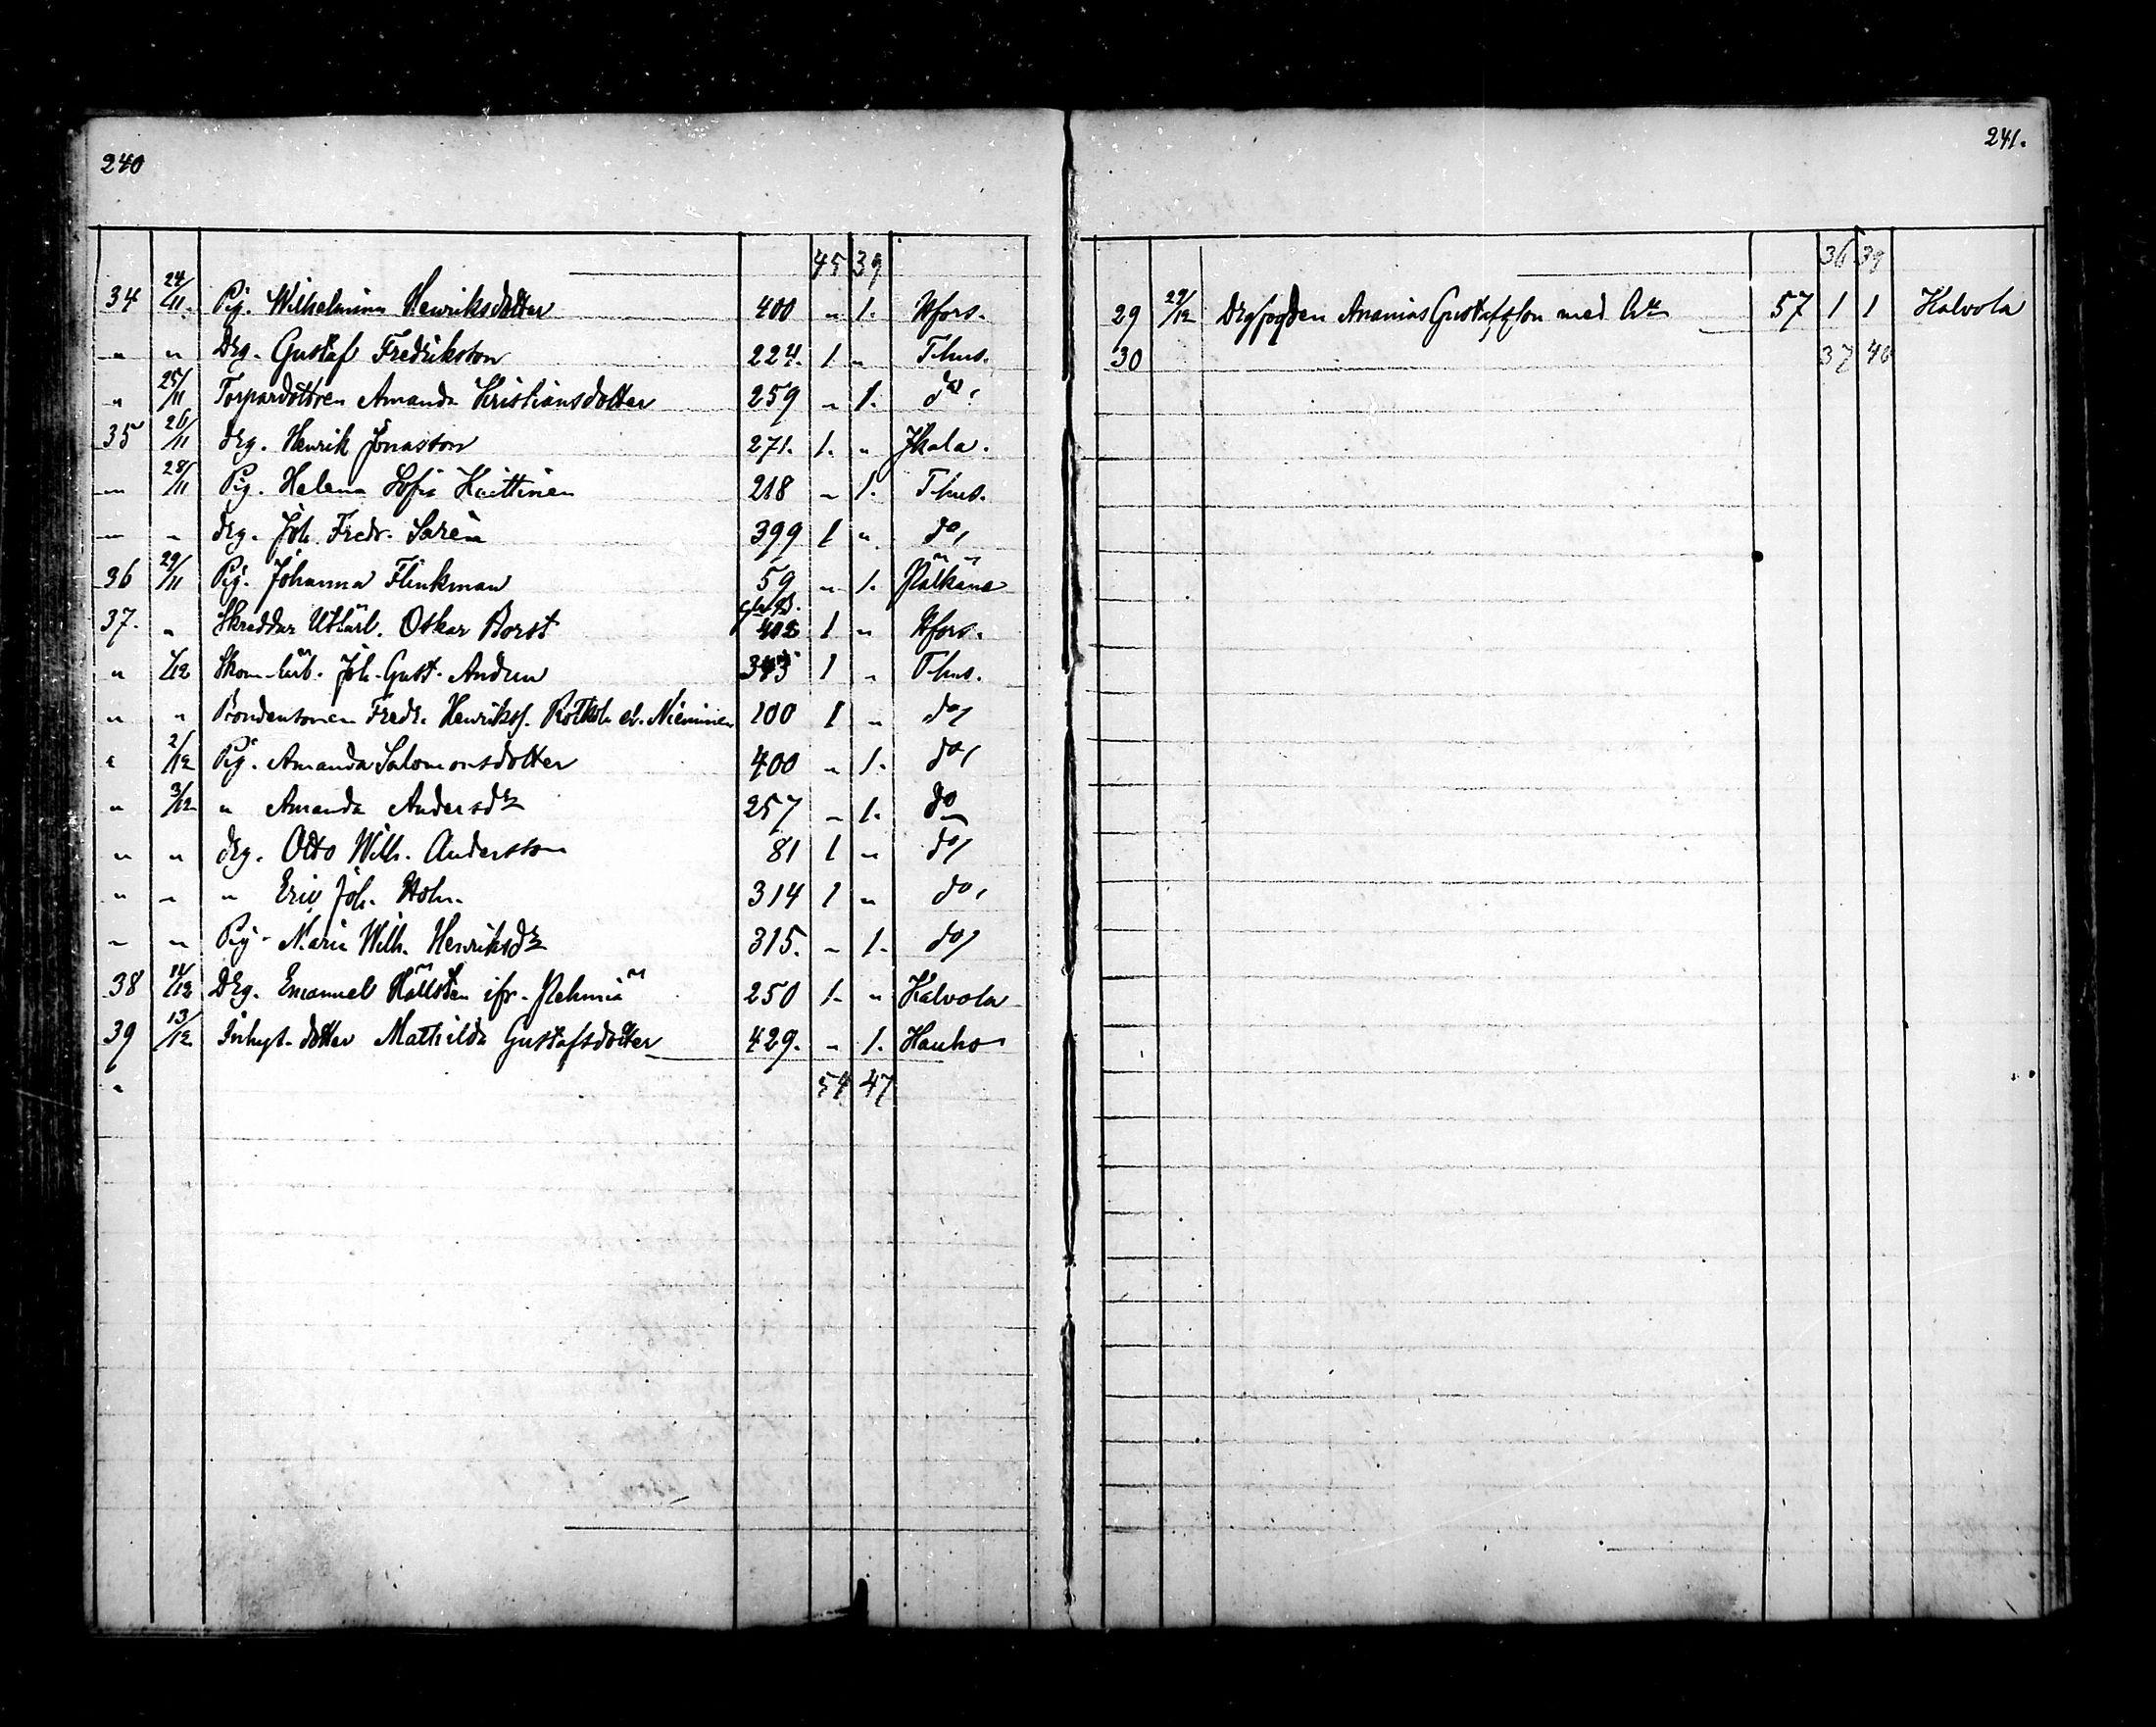 240
45 39
34 24/11. Pig. Wilhelmina Henriksdotter 400 " 1. Hfors.
" " Drg. Gustaf Fredriksson 224. 1 " Thus.
" 25/11 Torpardottren Amanda Kristiansdotter 259 " 1. do.
35 26/11 drg. Henrik Jonasson 271. 1. " Jkala.
" 28/11 Pig. Helena Sofia Huittinen 218 " 1. Thus.
" " drg. Joh. Fredr. Saren 399 1 " do,
36 29/11 Pig. Johanna Flinkman 59 " 1. Pälkäne
37. " Skreddar Oskar Borst 402 1 " Hfors.
" 1/12 Skom-lärl. Joh. Gust. Andren 343 1 " Thus.
" " Bondensonen Fredr. Henrikss. el. Nieminen 100 1 " do,
" 2/12 Pig. Amanda Salomonsdotter 400 " 1. do,
" 3/12 " Amanda Andersdr 257 " 1. do
" " drg. Otto Wilh. Andersson 81 1 " do,
" " " Eric Joh. Holm. 314 1 " do,
" " Pig. Maria Wilh. Henriksdr 315. " 1. do,
38 11/12 Drg. Emanuel Hällsten ifr. 250 1. " Kalvola
39 13/12 Inhys. dotter Mathilda Gustafsdotter 429. " 1. Hauho
" 54 47
241.
36 39
29 29/12 Drgfogden Ananias Gustafsson med 57 1 1 Kalvola
30 37 40